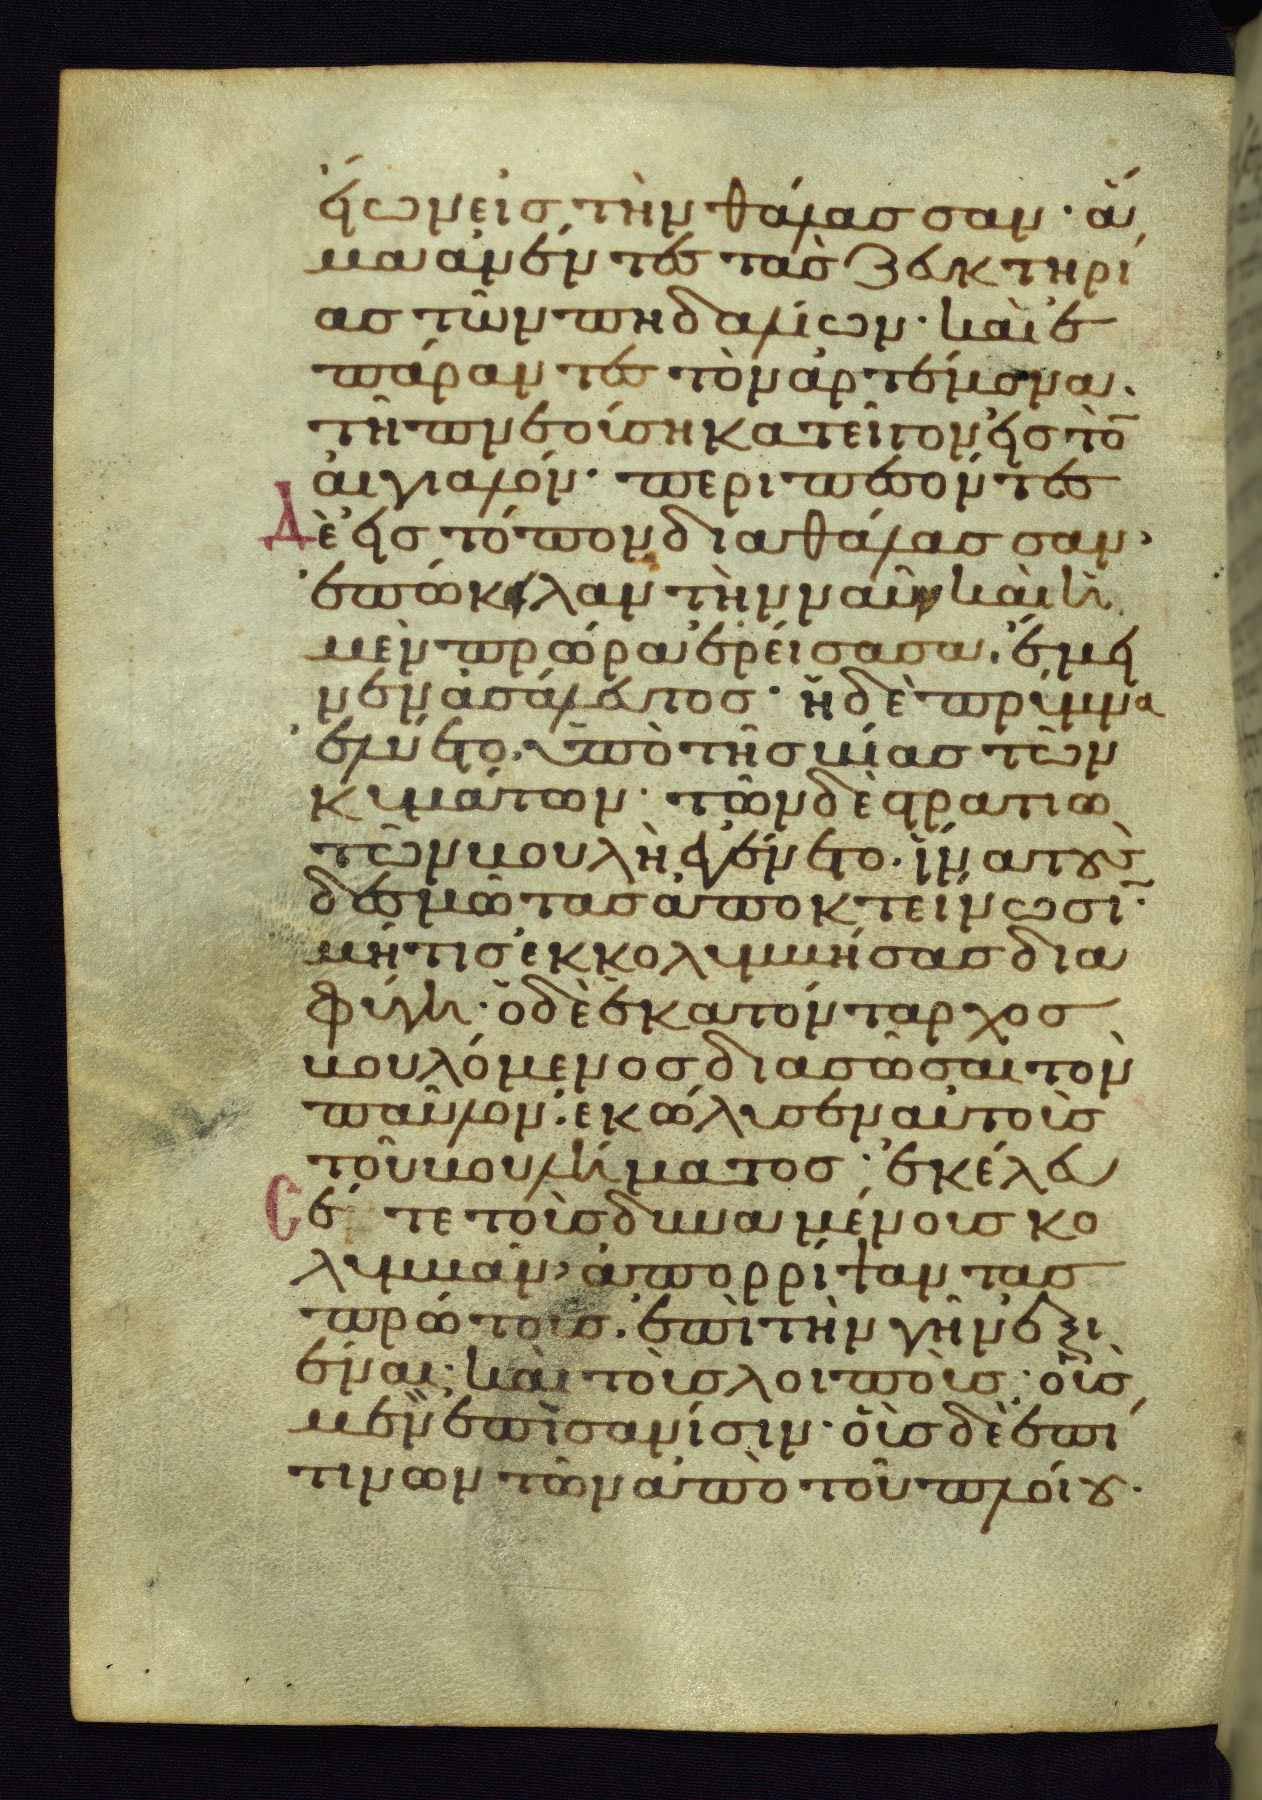 είων εἰς τὴν θάλασσαν· ἅ
μα ἀνέντες τὰς ζεύκτηρί
ας τῶν πηδαλίων· καὶ ἐ
πάραντες τὸν ἀρτέμονα.
τῆ πνεούση κατεῖχον εἰς τὸ
αἰγιαλόν· περιπεσόντες
Δὲ εἰς τόπον διαθάλασσαν·
ἐπώκειλαν τὴν ναῦν καὶ ἡ
μὲν πρώρα ἐρείσασα. ἔμει
νεν ἀσάλευτος· ἡ δὲ πρύμνα
ἐλύετο. ὑπὸ τῆς βίας τῶν
κυμάτων· τῶν δὲ στρατιω
τῶν βουλὴ ἐγένετο. ἵνα τοὺς
δεσμώτας ἀποκτείνωσι·
μή τις ἐκκολυμβήσας δια
φύγη· ὁ δὲ ἑκατόνταρχος
βουλόμενος διασῶσαι τὸν
παῦλον. ἐκώλυσεν αὐτοὺς
τοῦ βουλήματος· ἐκέλευ
Σέ τε τοὺς δυναμένους κο
λυμβᾶν, ἀπορρίψαντας
πρώτους. ἐπὶ τὴν γῆν ἐξι
έναι· καὶ τοὺς λοιποὺς· οὓς
μὲν ἐπὶ σανίσιν· οὓς δὲ ἐπί
τινων τῶν ἀπὸ τοῦ πλοίου.